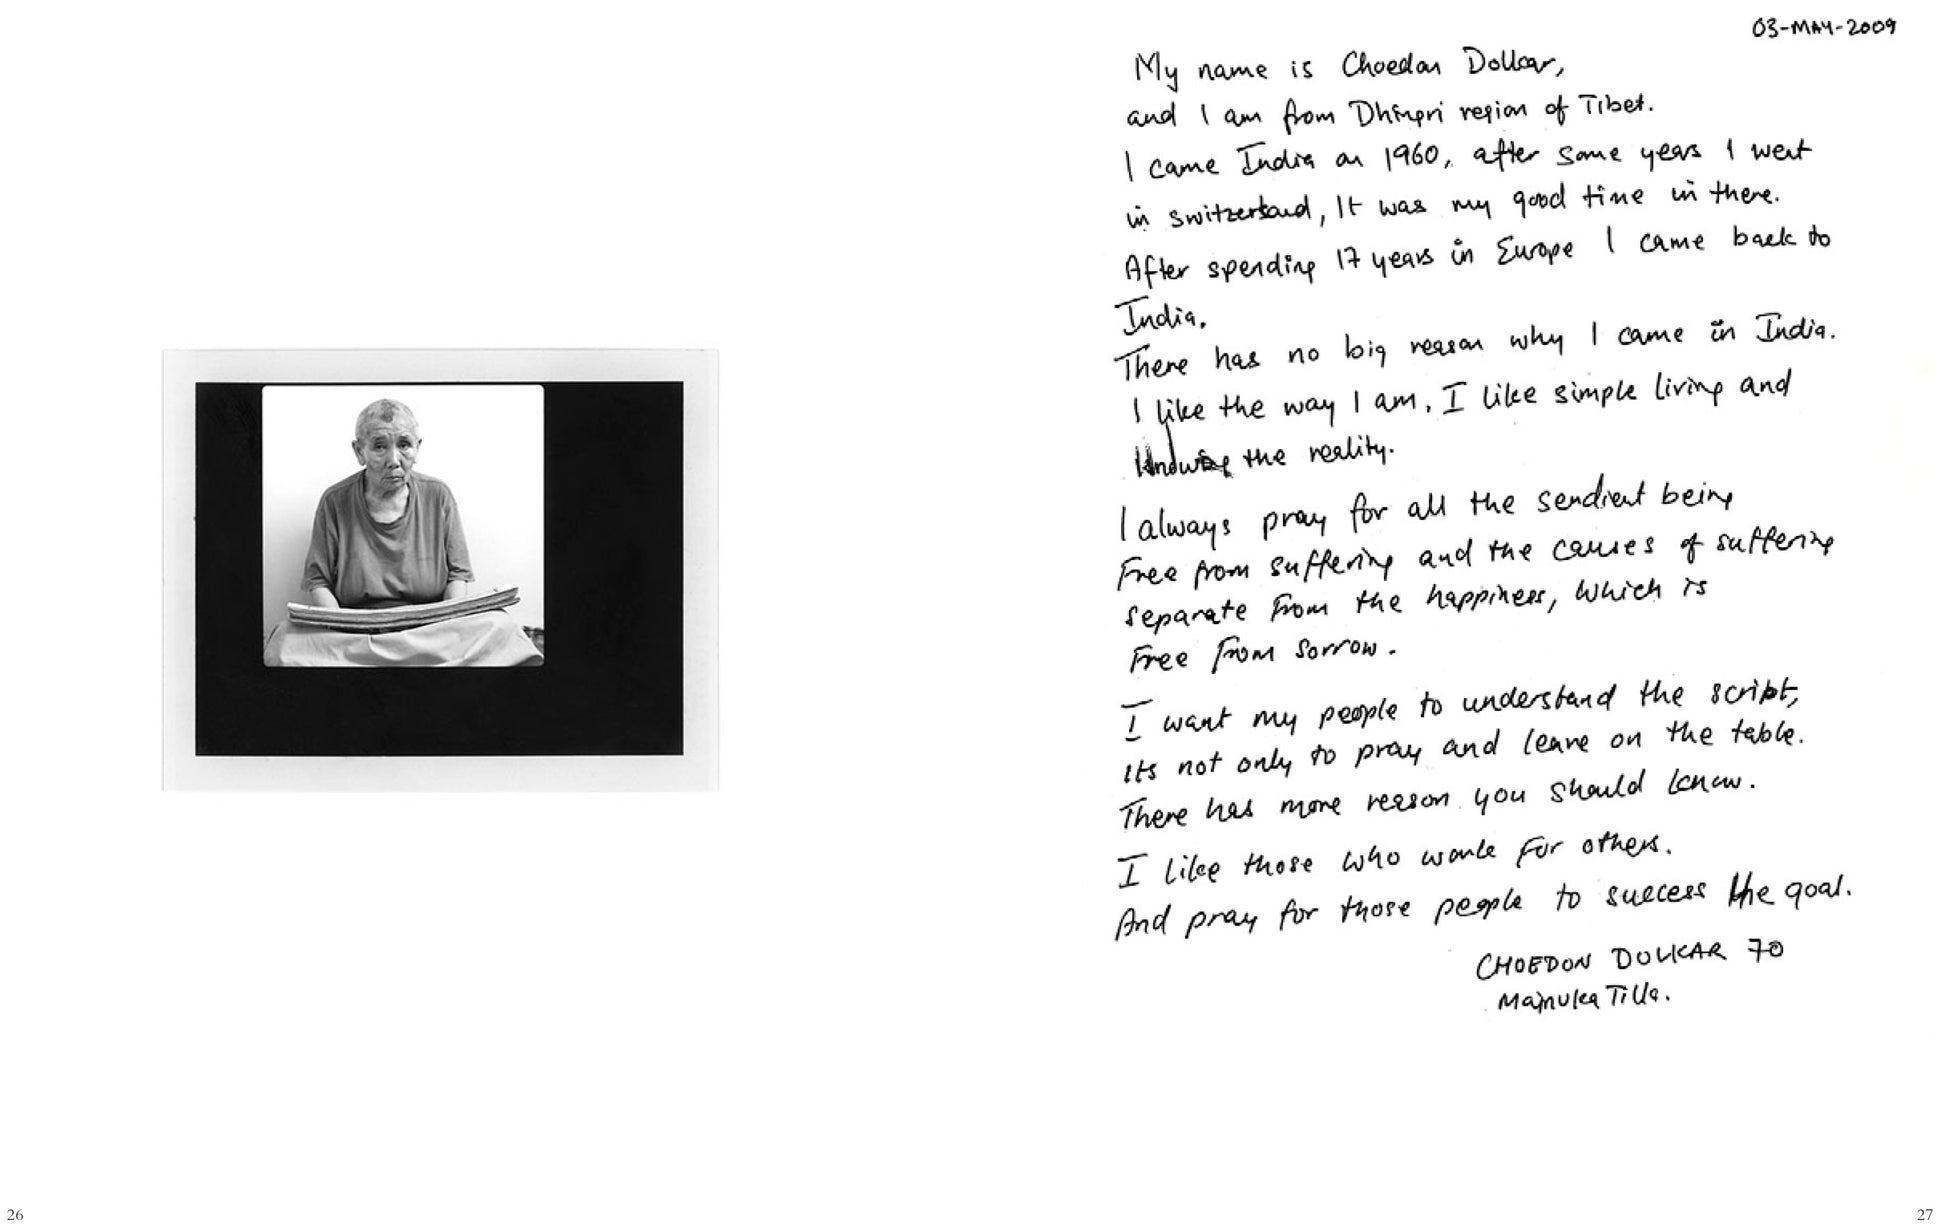 03-MAY-2009
My name is Choedon Dolkar,
and I am from Dhingri region of Tibet.
I came India on 1960, after some years I went
in switzerland, It was my good time in there.
After spending 17 years in Europe I came back to
India.
There has no big reason why I came in India.
I like the way I am. I like simple living and
knowing the reality.
I always pray for all the sendient being
Free from suffering and the causes of suffering
separate from the happiness, which is
Free from sorrow.
I want my people to understand the script,
its not only to pray and leave on the table.
There has more reason you should know.
I like those who work for others.
And pray for those people to success the goal.
CHOEDON DOLKAR 70
Majnuka Tilla.
26
27